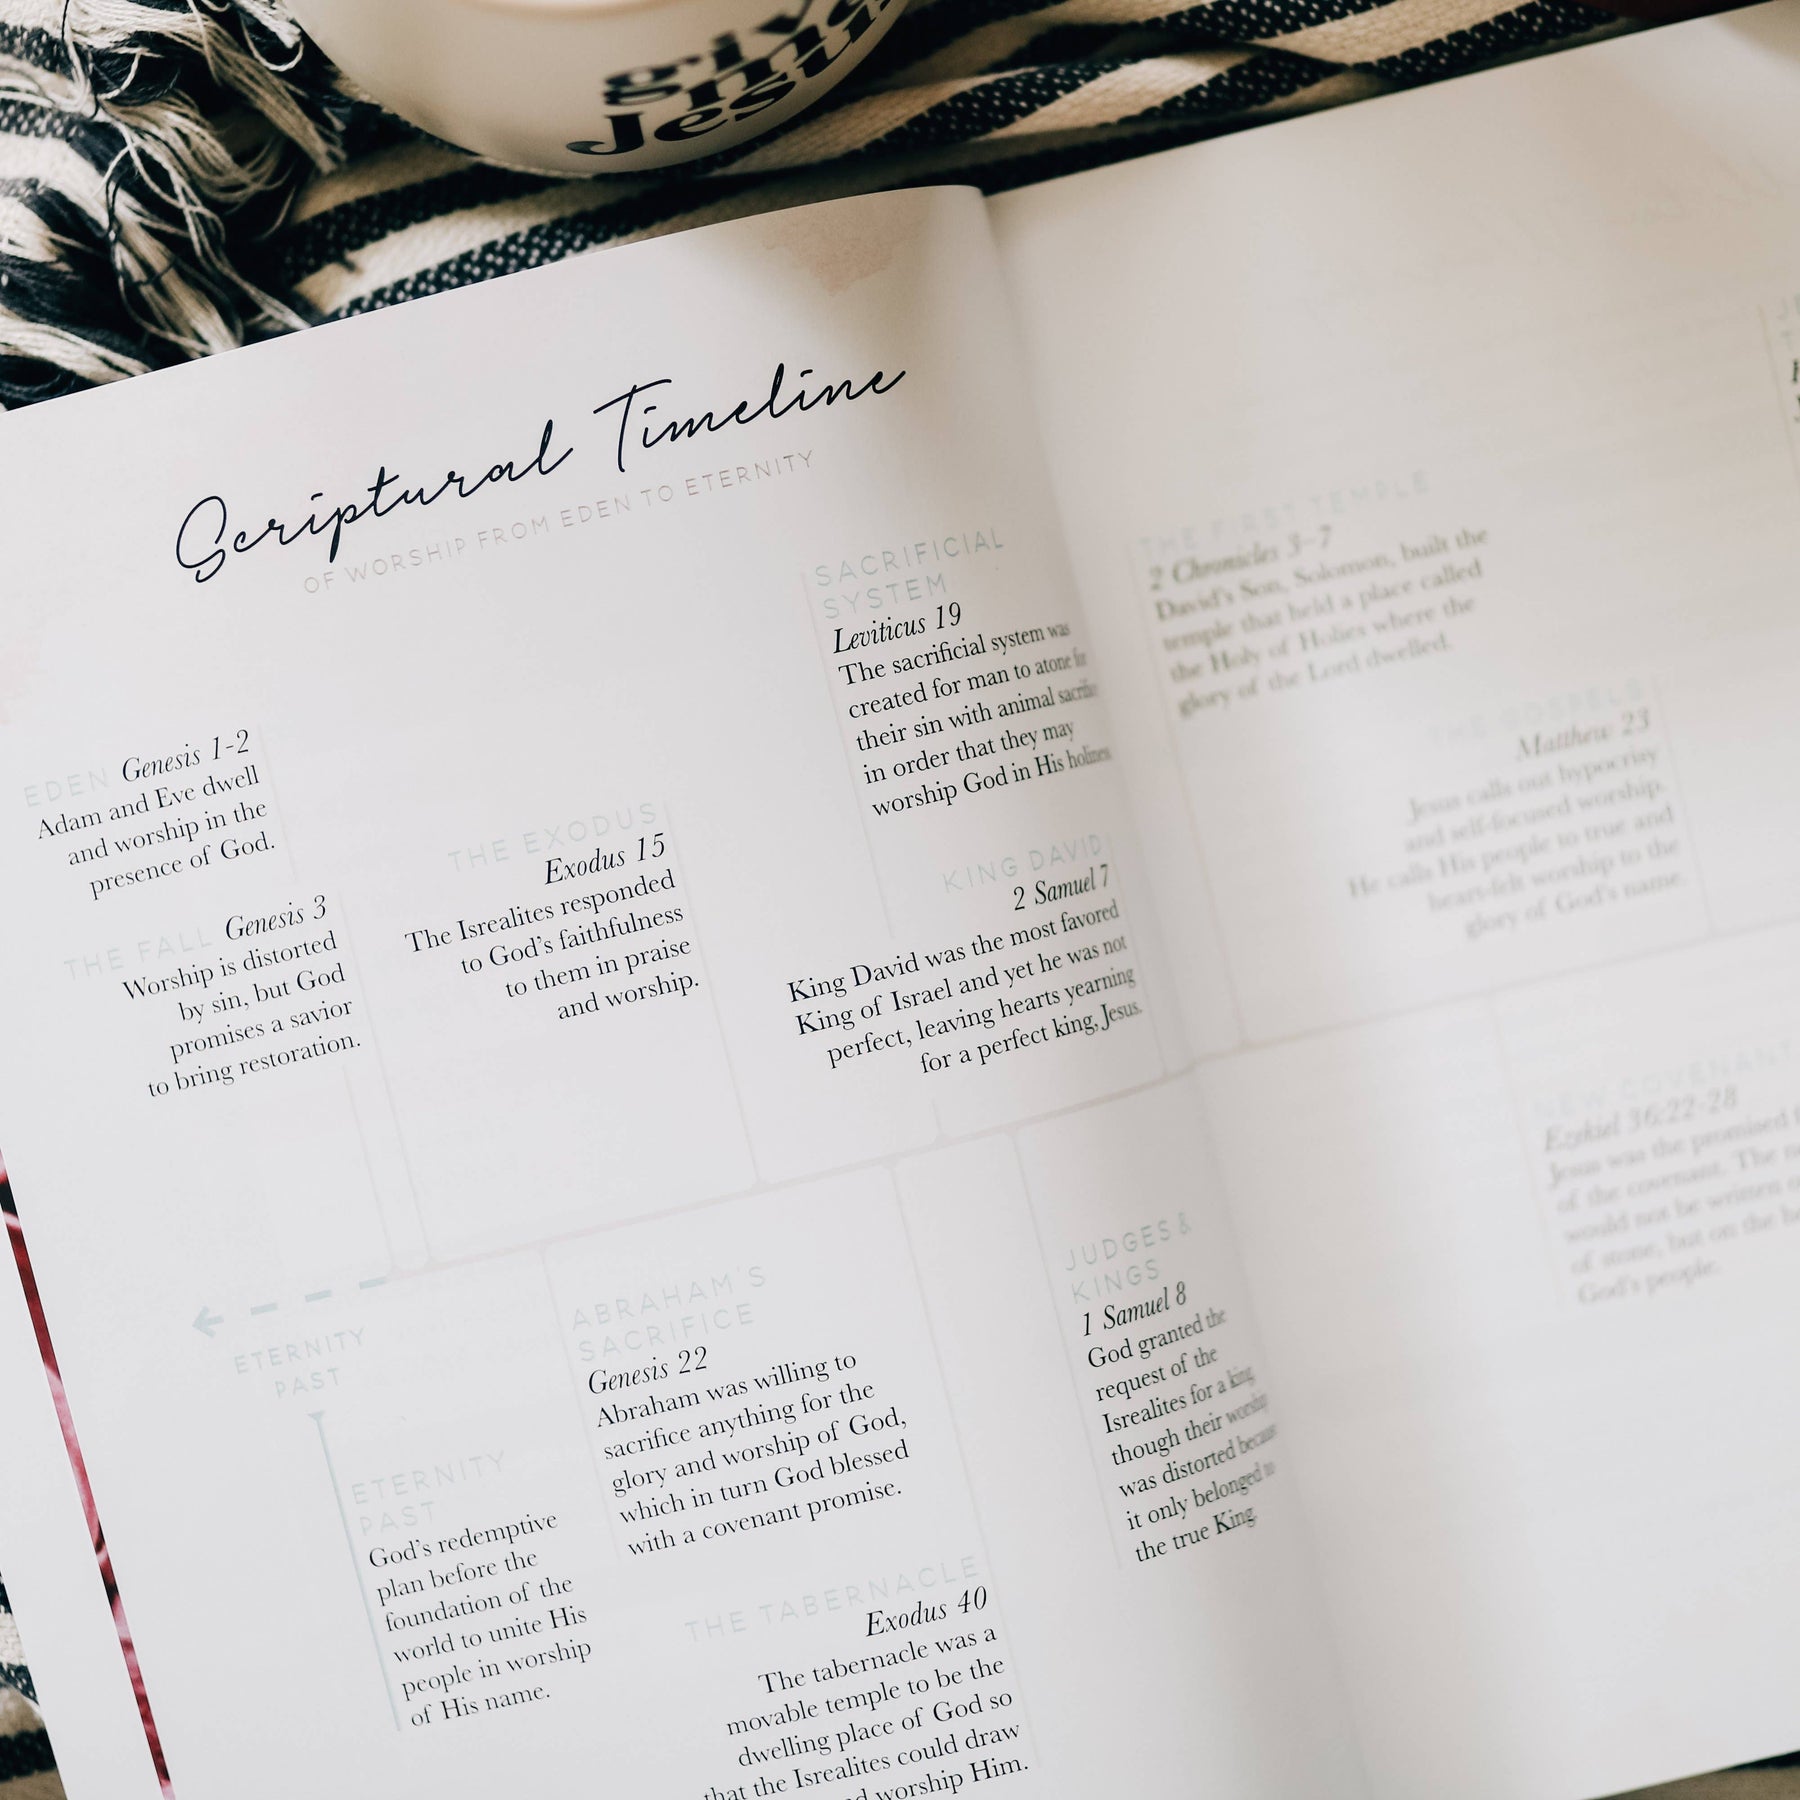 give
me
Jesus
Scriptural Timeline
OF WORSHIP FROM EDEN TO ETERNITY
EDEN Genesis 1-2
Adam and Eve dwell
and worship in the
presence of God.
THE FALL Genesis 3
Worship is distorted
by sin, but God
promises a savior
to bring restoration.
THE EXODUS
Exodus 15
The Isrealites responded
to God's faithfulness
to them in praise
and worship.
SACRIFICIAL
SYSTEM
Leviticus 19
The sacrificial system was
created for man to atone for
their sin with animal sacrifice
in order that they may
worship God in His holiness
KING DAVID
2 Samuel 7
King David was the most favored
King of Israel and yet he was not
perfect, leaving hearts yearning
for a perfect king, Jesus.
ETERNITY
PAST
ETERNITY
PAST
God's redemptive
plan before the
foundation of the
world to unite His
people in worship
of His name.
ABRAHAM'S
SACRIFICE
Genesis 22
Abraham was willing to
sacrifice anything for the
glory and worship of God,
which in turn God blessed
with a covenant promise.
THE TABERNACLE
Exodus 40
The tabernacle was a
movable temple to be the
dwelling place of God so
that the Isrealites could draw
worship Him.
JUDGES &
KINGS
1 Samuel 8
God granted the
request of the
Isrealites for a king
though their worship
was distorted because
it only belonged to
the true King.
THE FIRST TEMPLE
2 Chronicles 3-7
David's Son, Solomon, built the
temple that held a place called
the Holy of Holies where the
glory of the Lord dwelled.
THE GOSPELS
Matthew 23
Jesus calls out hypocrisy
and self-focused worship.
He calls His people to true and
heart-felt worship to the
glory of God's name.
NEW COVENANT
Ezekiel 36:22-28
Jesus was the promised
of the covenant. The
would not be written
of stone, but on the
God's people.